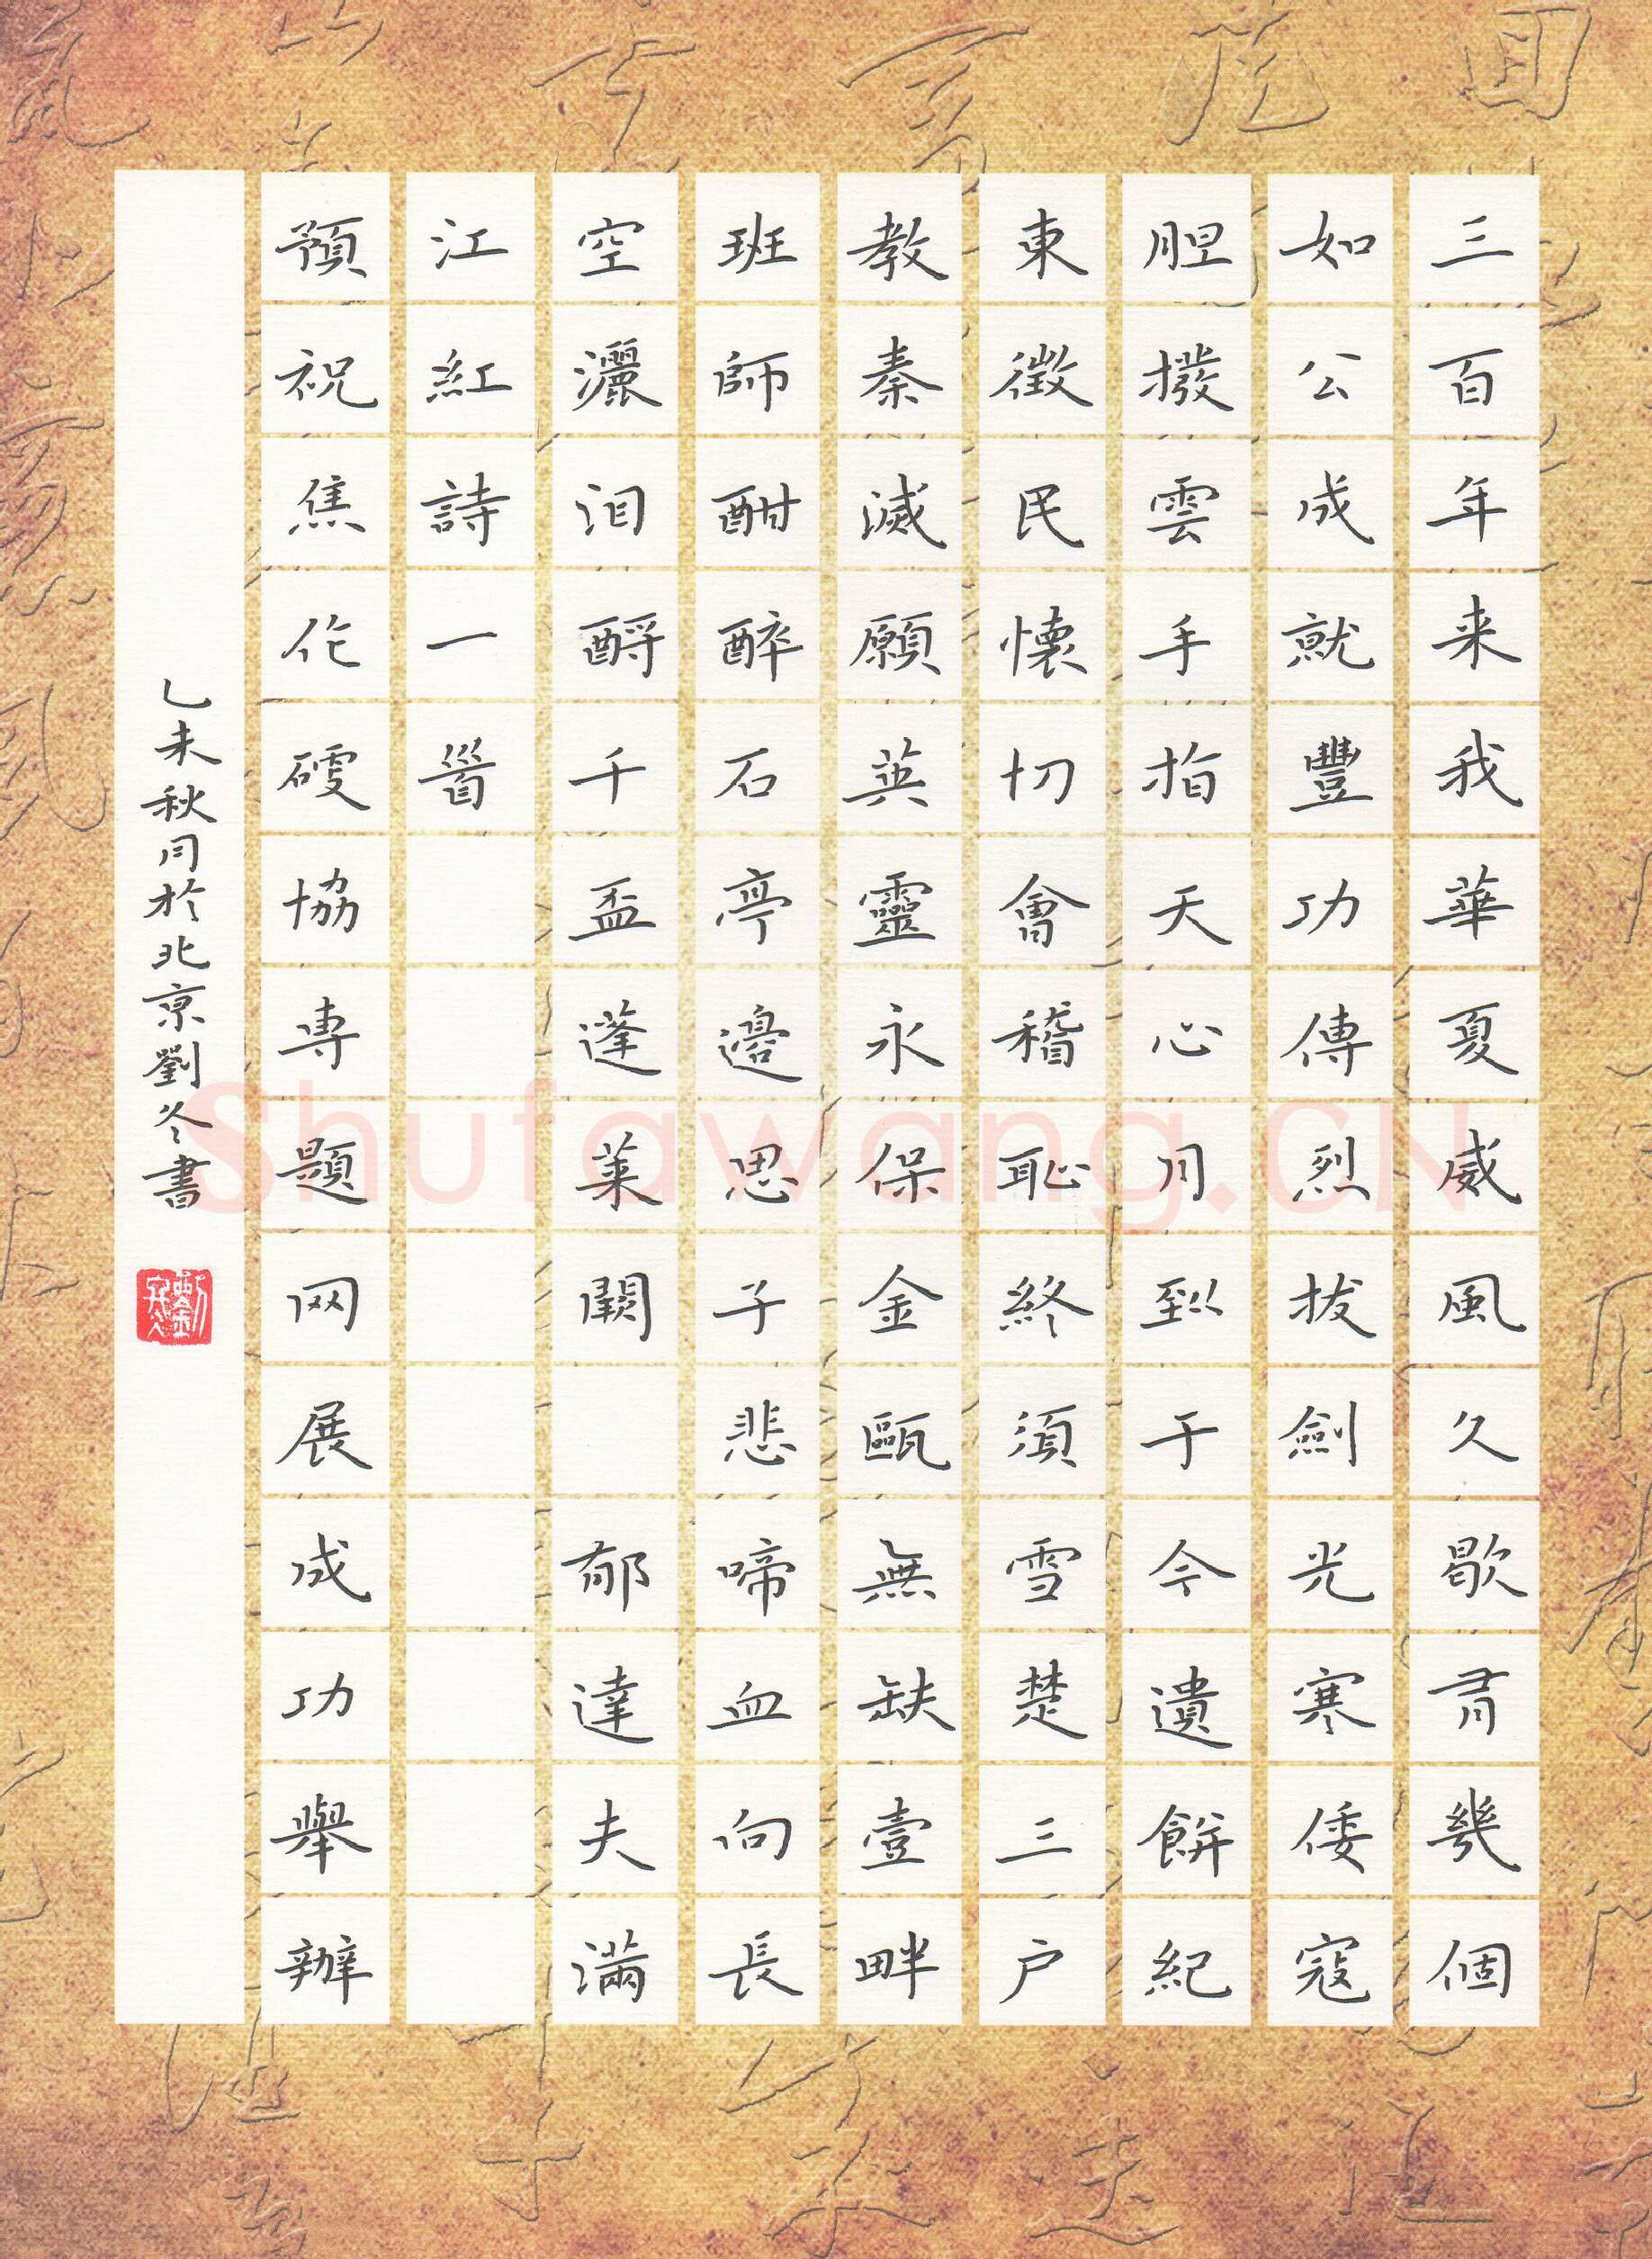 三百年来我華夏威風久歇有幾個
如公成就豐功傳烈拔劍光寒倭寇
胆撥雲手指天心月到于今遺餅紀
東徵民懷切會稽恥終須雪楚三户
教秦滅願英靈永保金甌無缺壹畔
班師酣醉石亭邊思子悲啼血向長
空灑泪酹千盃蓬萊闕 郁達夫滿
江紅詩一首
預祝焦作硬協專題网展成功舉辦
乙未秋月於北京劉冬書
Shufawang.CN